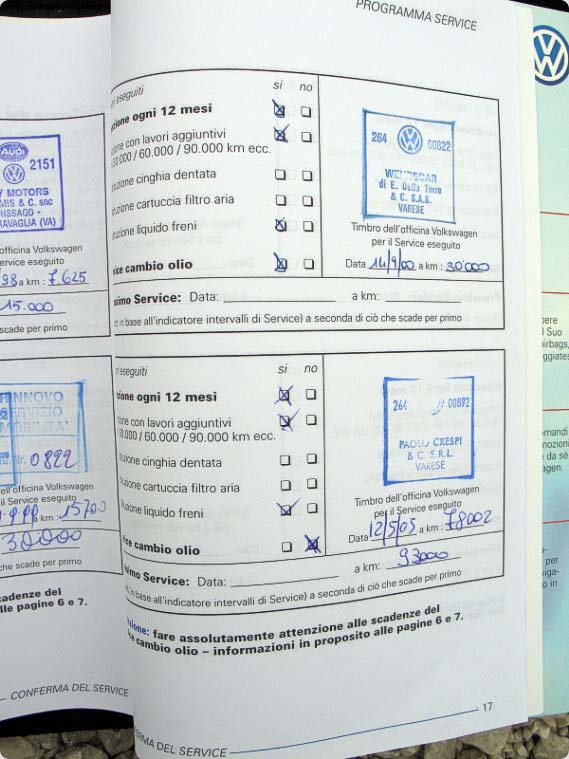 PROGRAMMA SERVICE
eseguiti si no
zione ogni 12 mesi
zione con lavori aggiuntivi
30.000 / 60.000 / 90.000 km ecc.
tuzione cinghia dentata
tuzione cartuccia filtro aria
tuzione liquido freni
vice cambio olio
264 00822
WENDECAR
di E. Della Torre
& C. S.A.S.
VARESE
Timbro dell'officina Volkswagen
per il Service eseguito
Data 14/9/00 a km: 30'000
simo Service: Data: a km:
in base all'indicatore intervalli di Service) a seconda di ciò che scade per primo
eseguiti si no
zione ogni 12 mesi
zione con lavori aggiuntivi
0.000 / 60.000 / 90.000 km ecc.
tuzione cinghia dentata
tuzione cartuccia filtro aria
tuzione liquido freni
vice cambio olio
264 00892
PAOLO CRESPI
& C. S.R.L.
VARESE
Timbro dell'officina Volkswagen
per il Service eseguito
Data 12/5/05 a km: 78002
simo Service: Data: a km: 93000
in base all'indicatore intervalli di Service) a seconda di ciò che scade per primo
zione: fare assolutamente attenzione alle scadenze del
ce cambio olio – informazioni in proposito alle pagine 6 e 7.
17
ERMA DEL SERVICE
Audi
2151
Y MOTORS
MIS & C. snc
RISSAGO -
RAVAGLIA (VA)
l'officina Volkswagen
ervice eseguito
98 a km: 7.625
15.000
scade per primo
RINNOVO
SERVIZIO
MOBILITA'
0822
dell'officina Volkswagen
il Service eseguito
a km: 15700
30000
che scade per primo
cadenze del
lle pagine 6 e 7.
CONFERMA DEL SERVICE
pere
l Suo
airbags,
ggiates
omandi
nozioni
da sè
agen.
per
viga-
o in